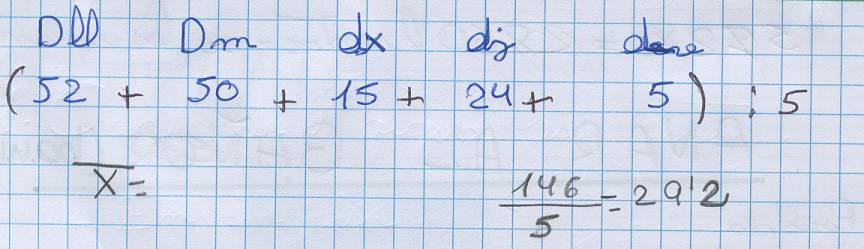 Dll Dm dx dj dne
(52 + 50 + 15 + 24 + 5) : 5
X̅ =
146/5 = 29'2